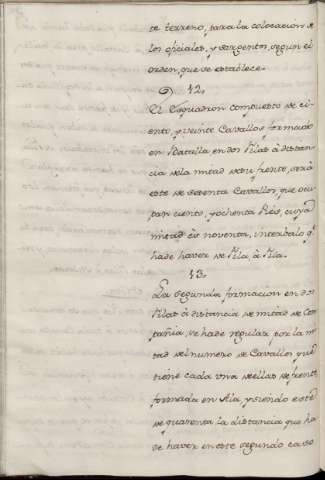 te terreno, para la colocacion de
los oficiales, y sargentos, segun el
orden, que se establece.
12.
El Esquadron compuesto de ci-
ento, y veinte Cavallos, formado
en Batalla en dos filas à distan-
cia de la mitad de su frente, será
este de setenta Cavallos, que ocu-
pan ciento, y ochenta Pies, cuya
mitad es noventa, intervalo q.e
ha de haver de fila, à fila.
13.
La segunda formacion en dos
filas à distancia de mitad de Com-
pañia, se ha de regular por la mi-
tad del numero de Cavallos, que
tiene cada una de ellas de frente
formada en Ala, y siendo este
de quarenta la distancia que ha
de haver en este segundo caso